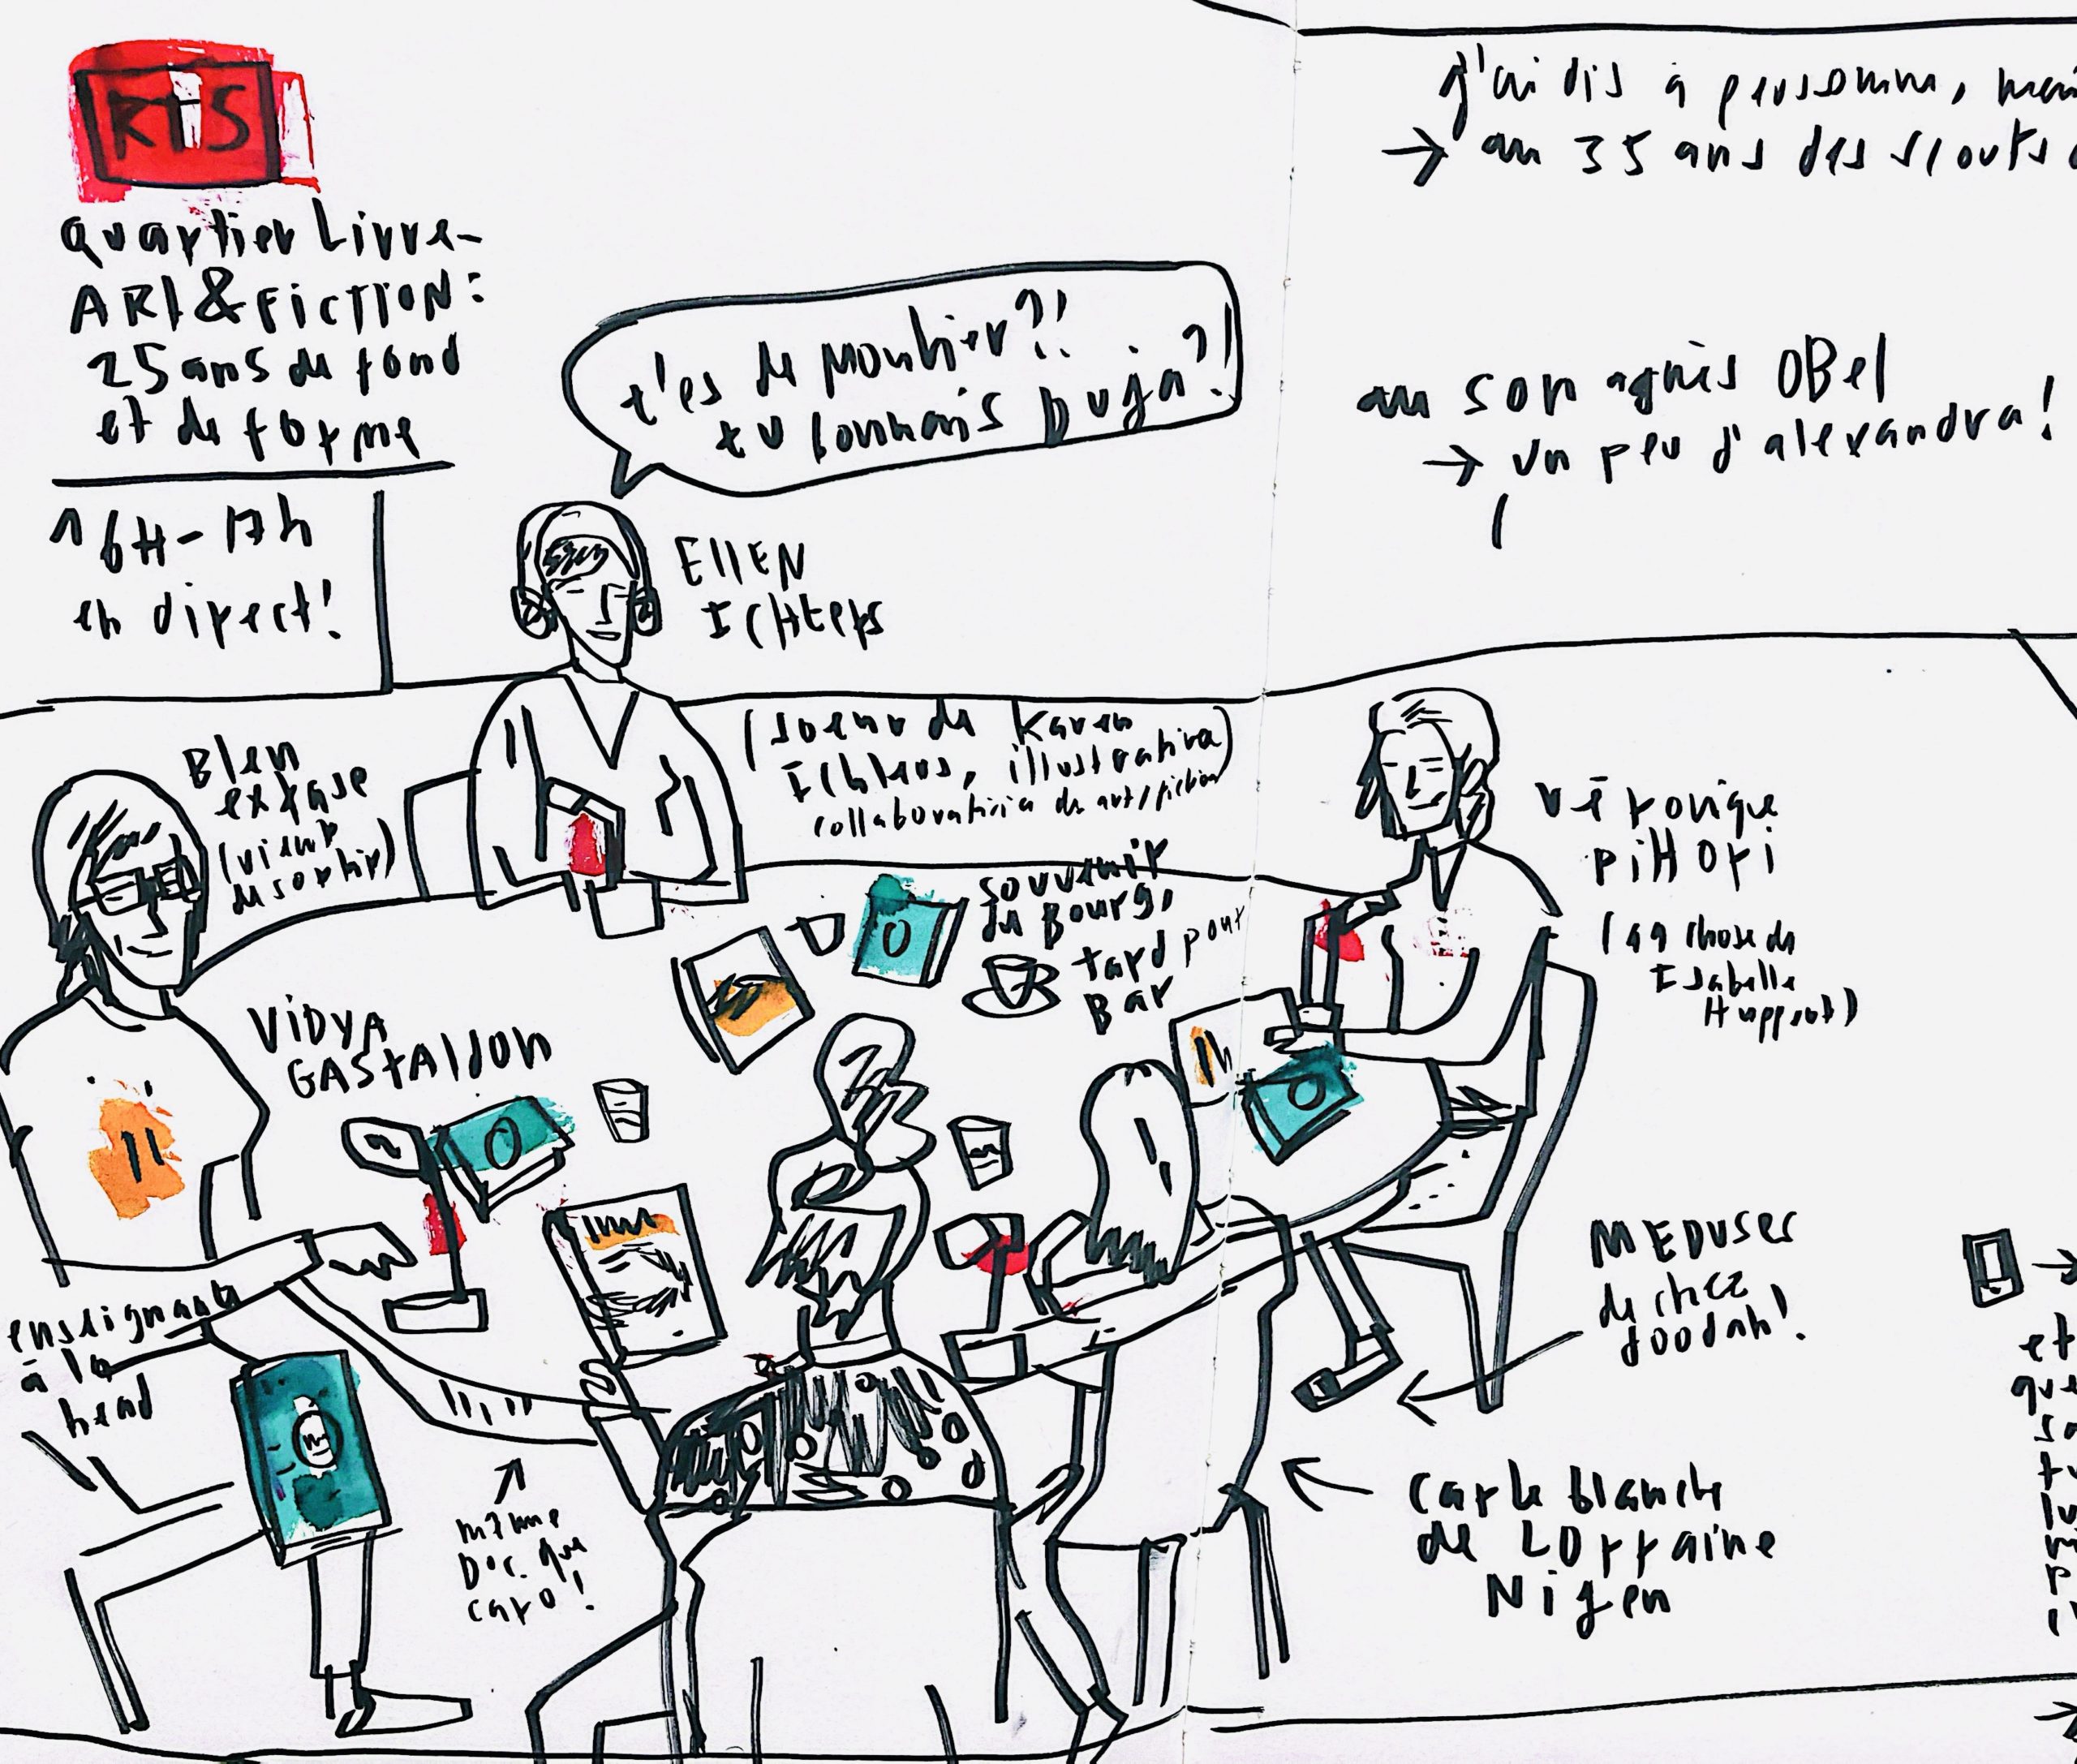 RTS
Quartier Livre-
ART&FICTION:
25 ans de fond
et de forme
16H-17h
en direct!
t'es de Moutier?!
tu connais puja?!
ELLEN
ICHTERS
(soeur de Karen
Ichters, illustratrice
collaboratrice de art/fiction)
Bleu
extase
(vient
de sortir)
VIDYA
GASTALDON
souvenir
du Bourg,
tard pour
Bar
enseignante
à la
head
même
Doc. que
caro!
j'ai dis à personne, mais
→ au 35 ans des scouts
au son agnès OBel
→ un peu d'alexandra!
véronique
piHOri
(qq chose de
Isabelle
Huppert)
MEDUSES
de chez
doodah!
carte blanche
de LOrraine
Nigen
et
que